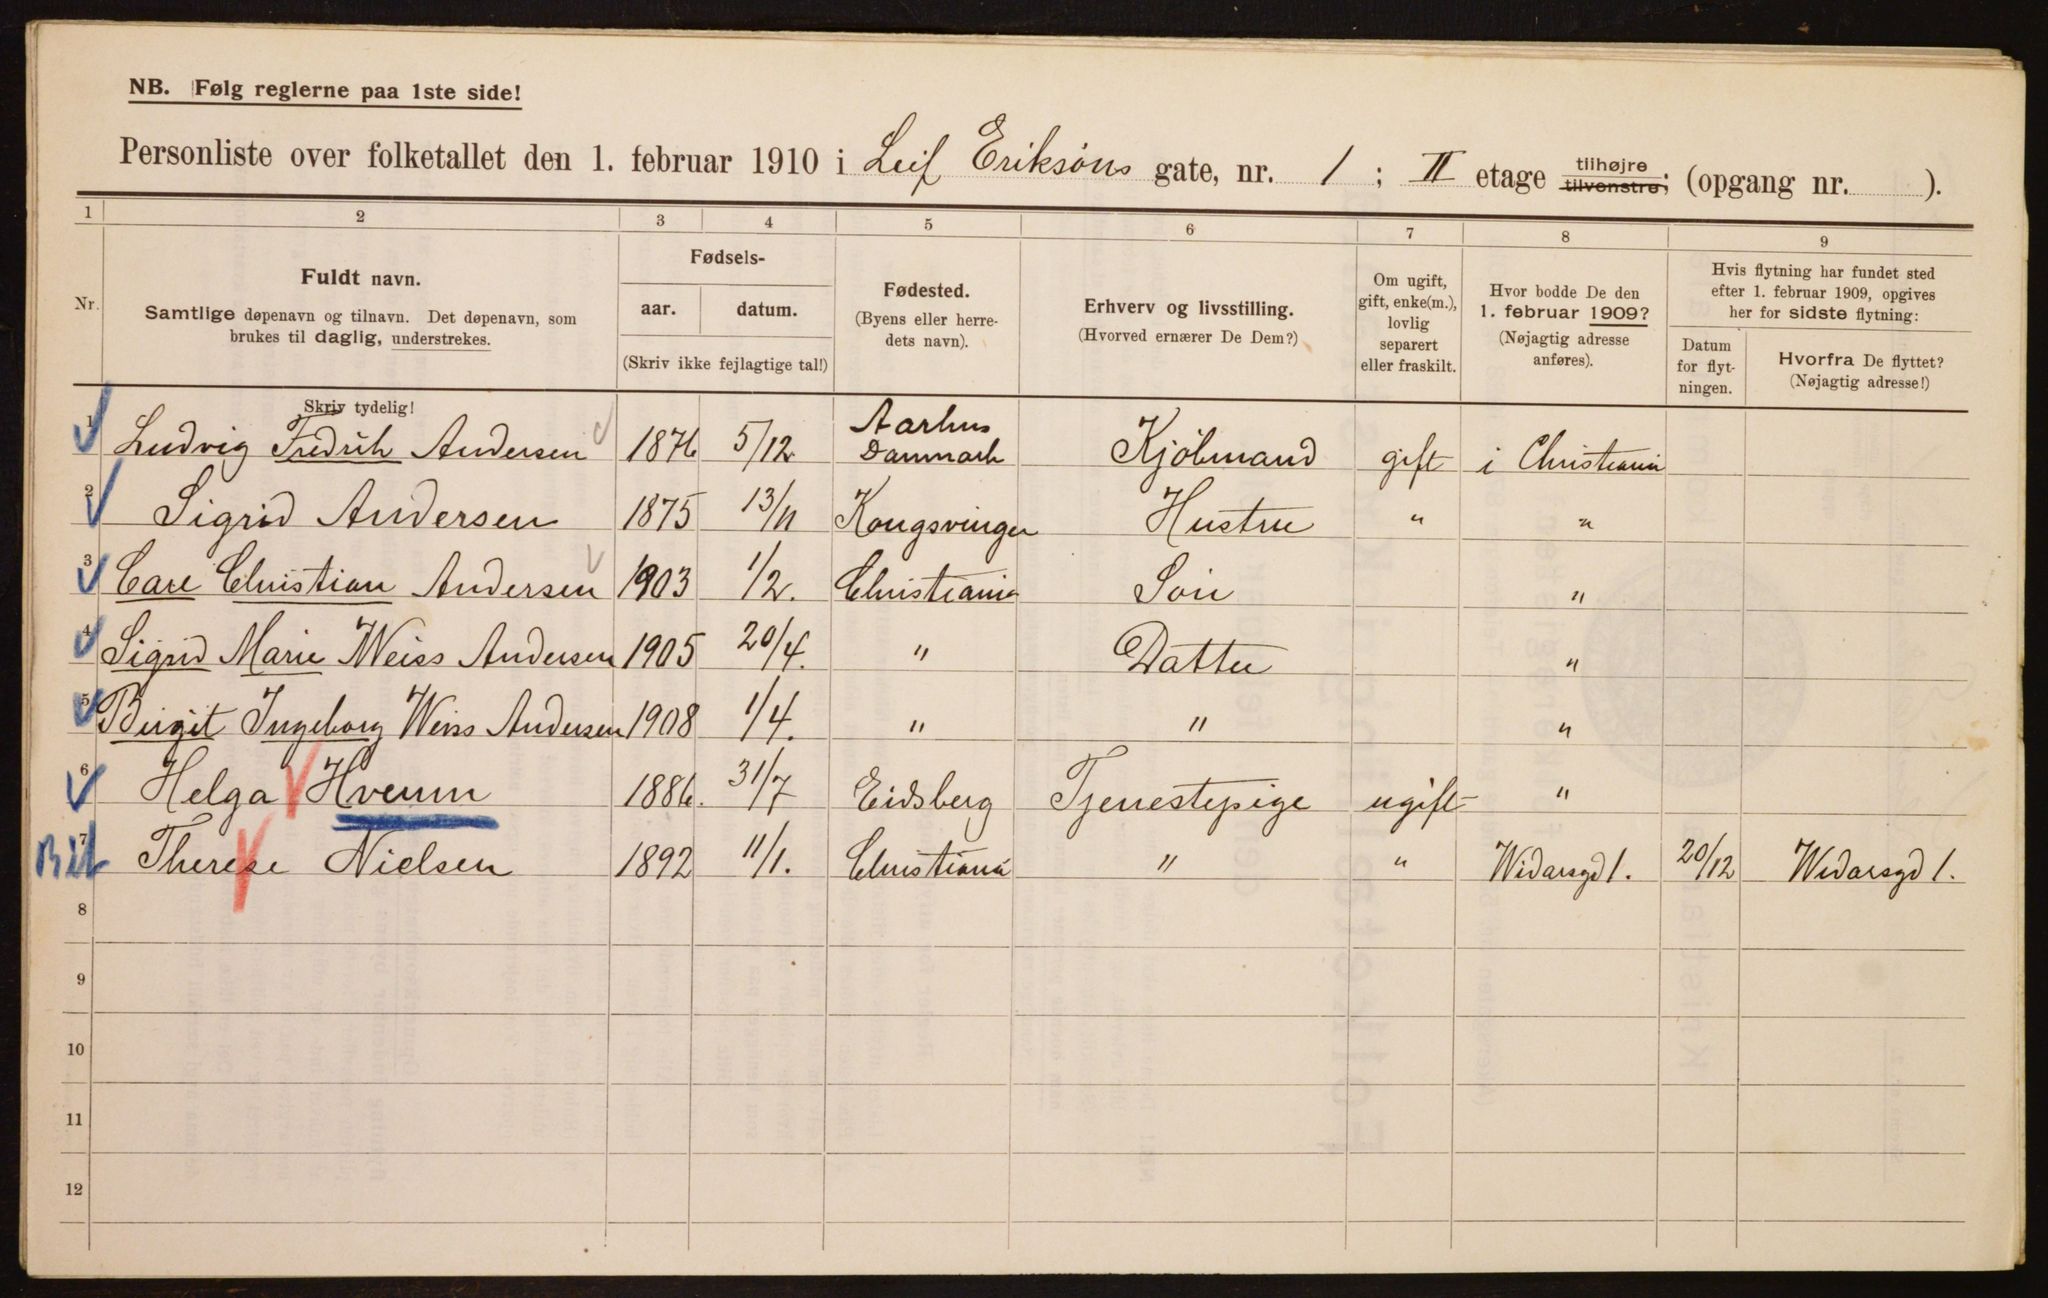 NB. Følg reglerne paa 1ste side!
Personliste over folketallet den 1. februar 1910 i Leif Eriksöns gate, nr. 1 ; II etage tilhøjre tilvenstre; (opgang nr. ).
1 2 3 4 5 6 7 8 9
Nr.
Fuldt navn.
Samtlige døpenavn og tilnavn. Det døpenavn, som
brukes til daglig, understrekes.
Skriv tydelig!
Fødsels-
aar. datum.
(Skriv ikke fejlagtige tal!)
Fødested.
(Byens eller herre-
dets navn).
Erhverv og livsstilling.
(Hvorved ernærer De Dem?)
Om ugift,
gift, enke(m.),
lovlig
separert
eller fraskilt.
Hvor bodde De den
1. februar 1909?
(Nøjagtig adresse
anføres).
Hvis flytning har fundet sted
efter 1. februar 1909, opgives
her for sidste flytning:
Datum
for flyt-
ningen.
Hvorfra De flyttet?
(Nøjagtig adresse!)
1 Ludvig Fredrik Andersen 1876 5/12 Aarhus Danmark Kjöbmand gift i Christiania
2 Sigrid Andersen 1875 13/11 Kongsvinger Hustru " "
3 Care Christian Andersen 1903 1/2. Christiania Sön "
4 Sigrid Marie Weiss Andersen 1905 20/4. " Datter "
5 Birgit Ingeborg Weiss Andersen 1908 1/4. " " "
6 Helga Hvenn 1886. 31/7 Eidsberg Tjenestepige ugift "
7 Therese Nielsen 1892 11/1. Christiania " " Widarsgd 1. 20/12 Widarsgd 1.
8
9
10
11
12